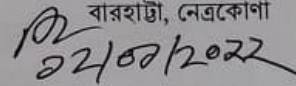 বারহাট্টা, নেত্রকোণা
০২/০৩/২০২২